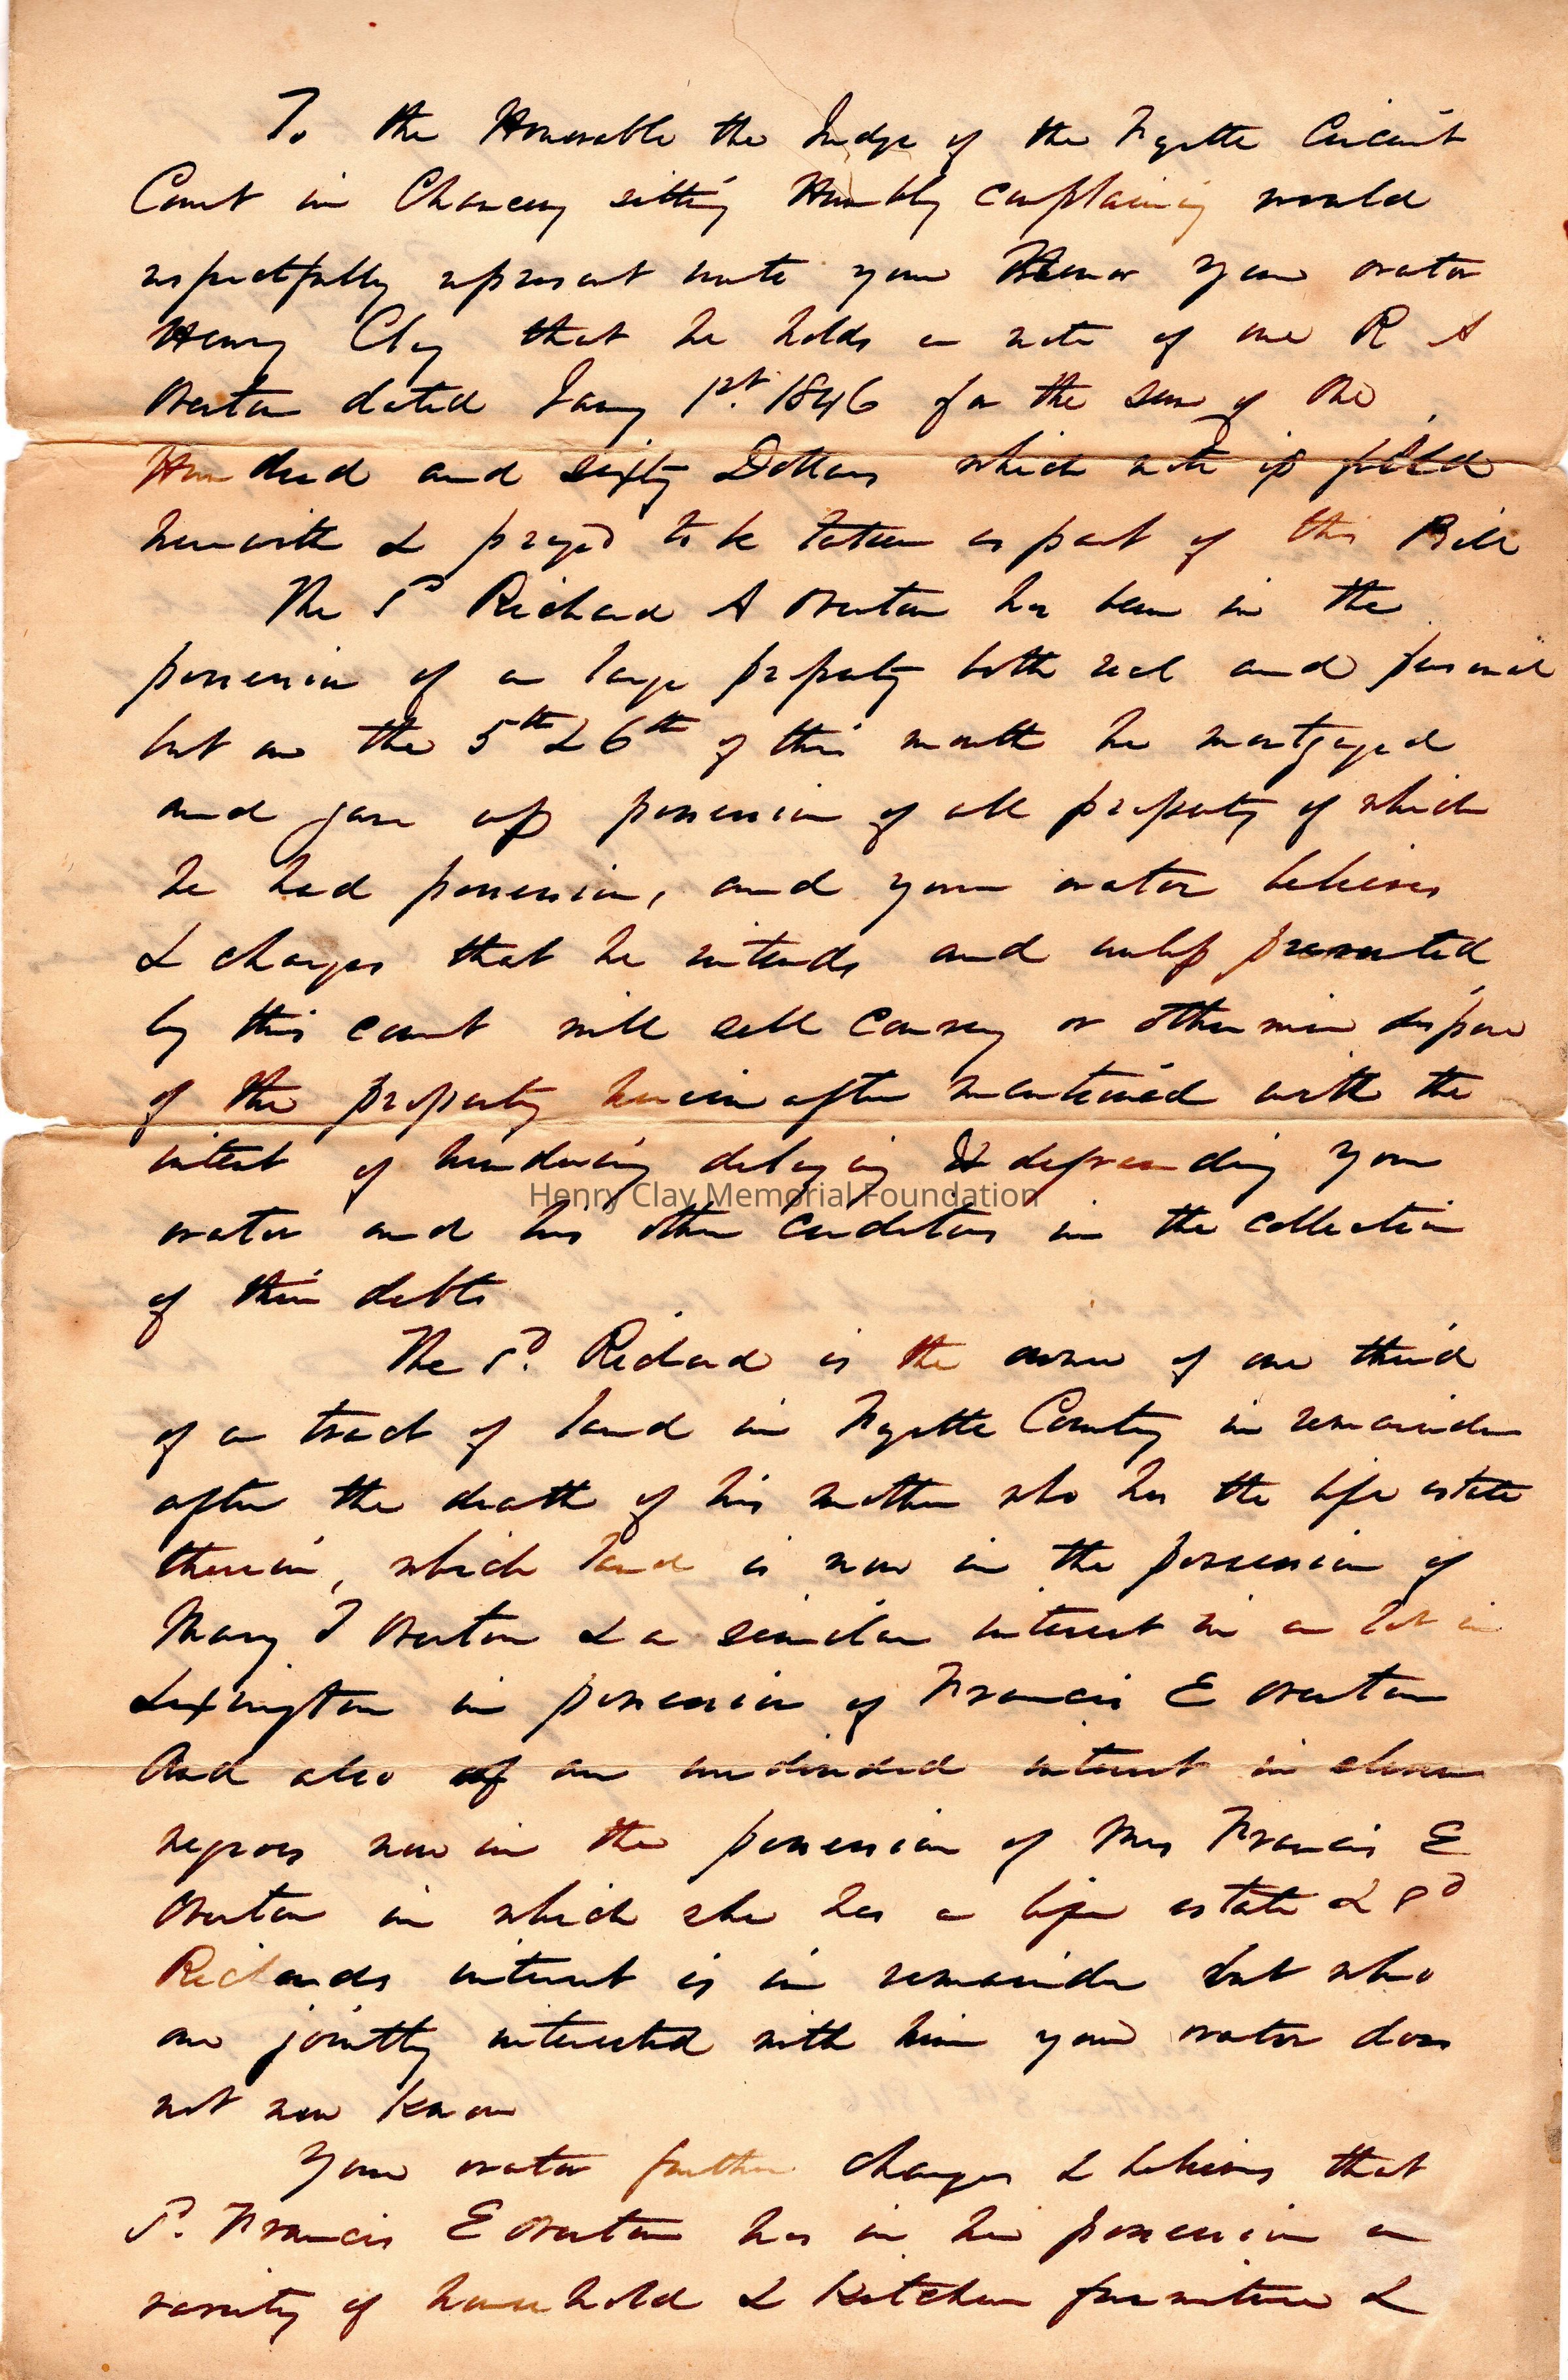 To the Honorable the Judge of the Fayette Circuit
Court in Chancery sitting Humbly complaining would
respectfully represent unto your Honor your orator
Henry Clay that he holds a note of one R A
Overton dated Jany 1st. 1846 for the sum of One
Hundred and sixty Dollars which note is filed
herewith & prayed to be taken as part of this Bill
The Sd Richard A Overton has been in the
possession of a large property both real and personal
but on the 5th & 6th of this month he mortgaged
and gave up possession of all property of which
he had possession, and your orator believes
& charges that he intends and unless prevented
by this court will sell convey or otherwise dispose
of the property herein after mentioned with the
intent of hindering delaying & defrauding your
Henry Clay Memorial Foundation
orator and his other creditors in the collection
of their debts
The Sd. Richard is the owner of one third
of a tract of land in Fayette County in remainder
after the death of his mother who has the life estate
therein, which land is now in the possession of
Mary T Overton & a similar interest in a lot in
Lexington in possession of Francis E Overton
And also of an undivided interest in eleven
negroes now in the possession of Mrs Francis E
Overton in which she has a life estate & Sd
Richards interest is in remainder but who
are jointly interested with him your orator does
not now know
Your orator further charges & believes that
S. Francis E Overton has in her possession a
variety of household & Kitchen furniture &